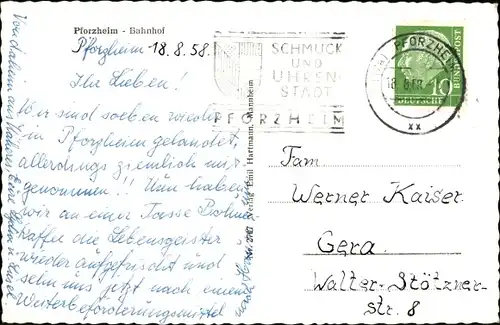 Pforzheim - Bahnhof
Pforzheim 18.8.58.
Ihr Lieben!
Wir sind soeben wieder
in Pforzheim gelandet,
allerdings ziemlich mit-
genommen!! Nun haben
wir an einer Tasse Bohnen-
kaffee die Lebensgeister
wieder aufgefrischt und
sehn uns jetzt nach einem
Weiterbeförderungsmittel
Verlag Emil Hartmann, Mannheim
SCHMUCK
UND
UHREN-
STADT
PFORZHEIM
PFORZHEIM
18.8.58
xx
DEUTSCHE
BUNDESPOST
10
Fam
Werner Kaiser
Gera
Walter-Stötzner-
str. 8